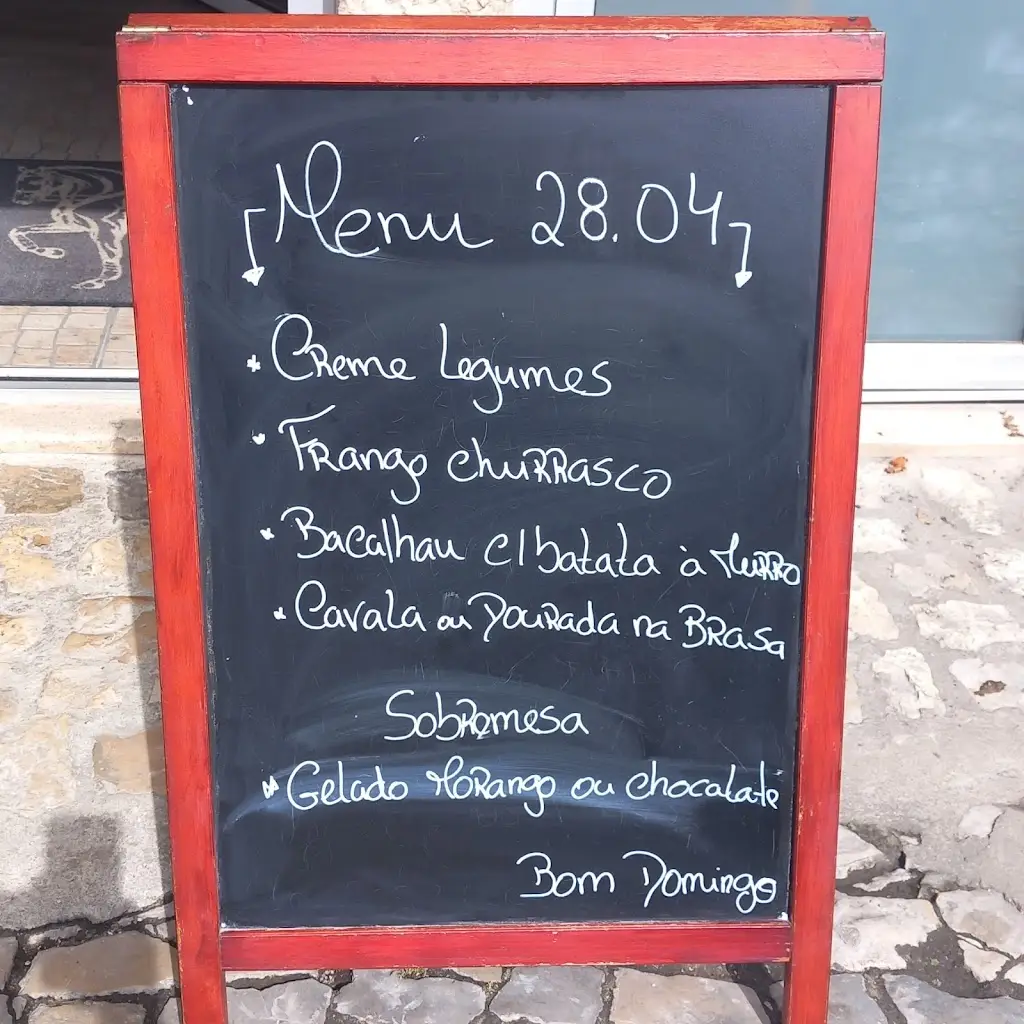 Menu 28.04
Creme Legumes
Frango churrasco
Bacalhau c/batata à Murro
Cavala ou Dourada na Brasa
Sobremesa
Gelado Morango ou chocolate
Bom Domingo